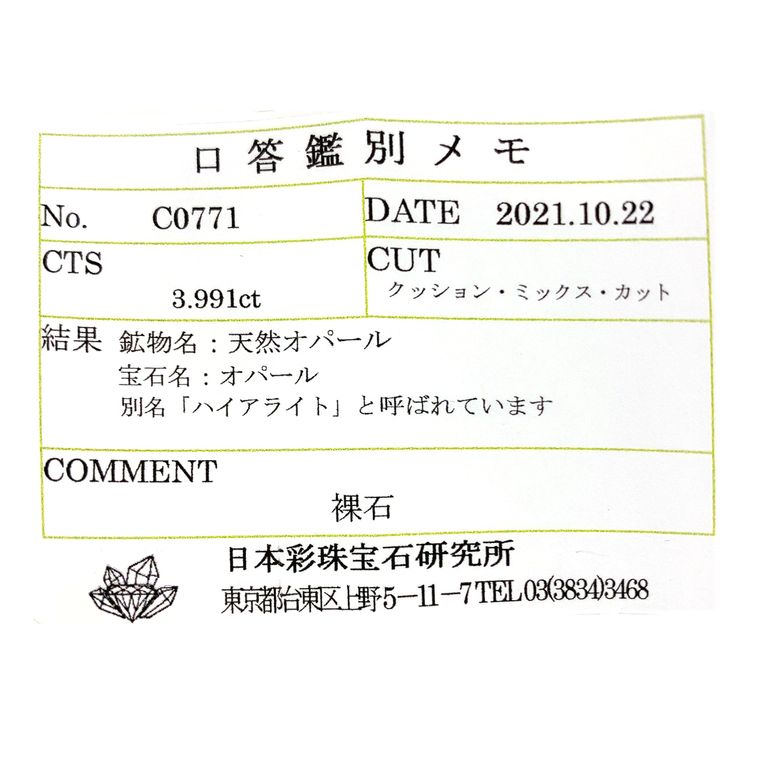 口答鑑別メモ
No. C0771 DATE 2021.10.22
CTS CUT
3.991ct クッション・ミックス・カット
結果 鉱物名：天然オパール
宝石名：オパール
別名「ハイアライト」と呼ばれています
COMMENT
裸石
日本彩珠宝石研究所
東京都台東区上野5－11－7 TEL 03(3834)3468